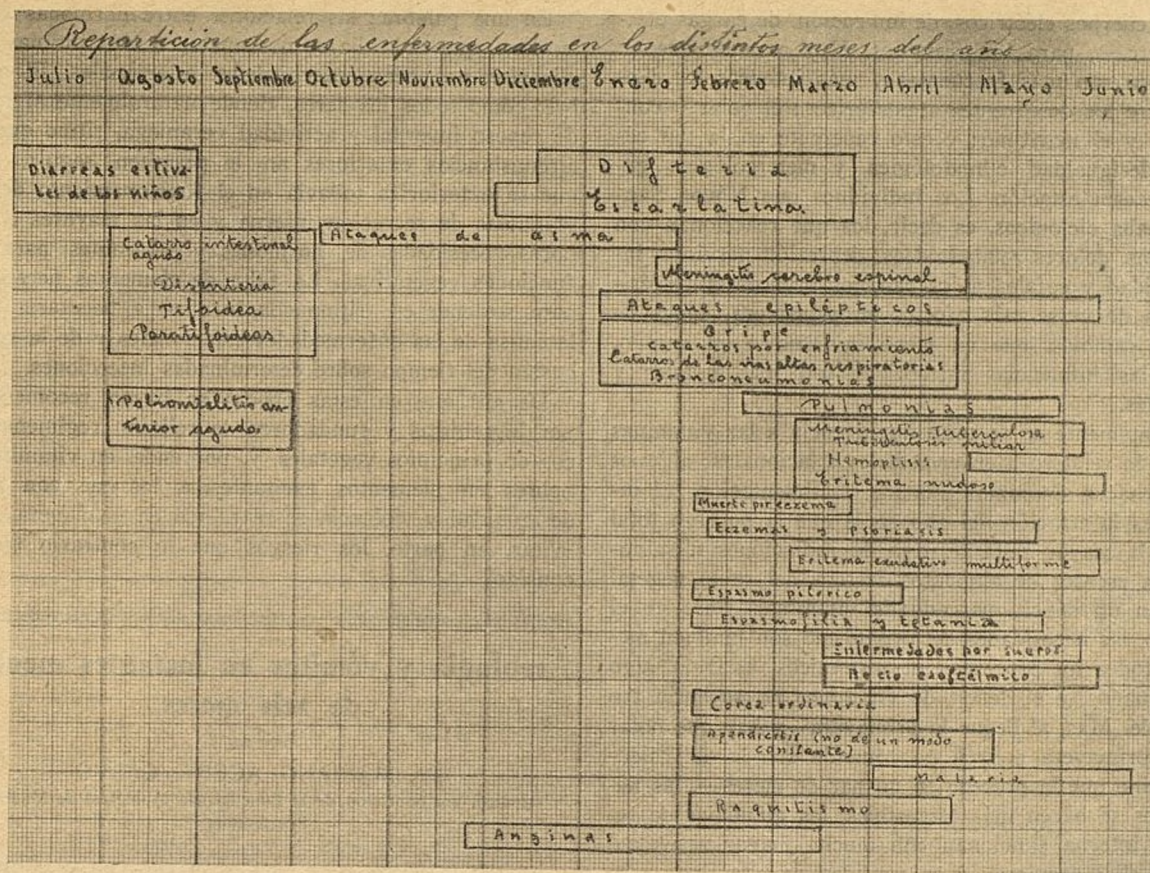 Repartición de las enfermedades en los distintos meses del año
Julio Agosto Septiembre Octubre Noviembre Diciembre Enero Febrero Marzo Abril Mayo Junio
Diarreas estiva-
les de los niños
Difteria
Escarlatina
Ataques de asma
Catarro intestinal
agudo
Disenteria
Tifoidea
Paratifoideas
Meningitis cerebro espinal
Ataques epilépticos
Gripe
Catarros por enfriamiento
Catarros de las vias altas respiratorias
Bronconeumonias
Poliomielitis an-
terior aguda
Pulmonias
Meningitis tuberculosa
Tuberculosis miliar
Hemoptisis
Eritema nudoso
Muerte por eczema
Eczemas y psoriasis
Eritema exudativo multiforme
Espasmo pilorico
Espasmofilia y tetania
Enfermedades por sueros
Bocio exoftálmico
Corea ordinaria
Apendicitis (no de un modo
constante)
Malaria
Raquitismo
Anginas